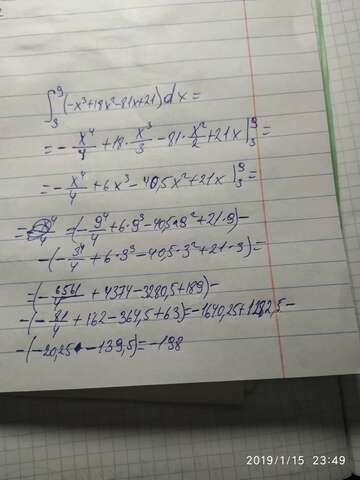 ∫₃⁹(-x³+18x²-81x+21)dx=
=-x⁴/4+18·x³/3-81·x²/2+21x|₃⁹=
=-x⁴/4+6x³-40,5x²+21x|₃⁹=
=(-9⁴/4+6·9³-40,5·9²+21·9)-
-(-3⁴/4+6·3³-40,5·3²+21·3)=
=(-6561/4+4374-3280,5+189)-
-(-81/4+162-364,5+63)=-1640,25+1282,5-
-(-20,25-139,5)=-198
2019/1/15 23:49